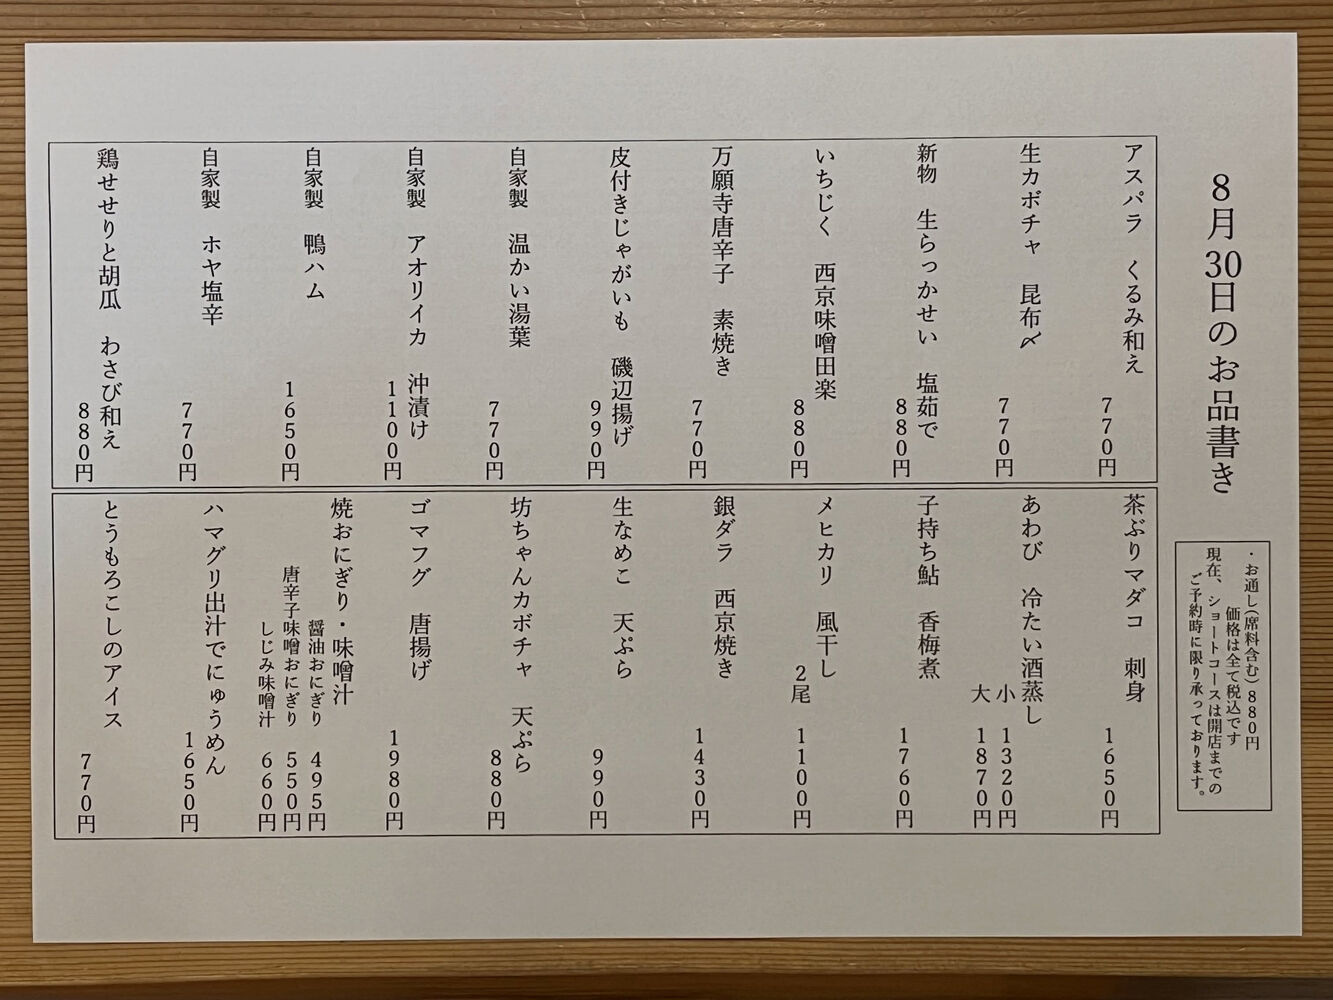 8月30日のお品書き
・お通し(席料含む)880円
価格は全て税込です
現在、ショートコースは開店までの
ご予約時に限り承っております。
アスパラ　くるみ和え
770円
生カボチャ　昆布〆
770円
新物　生らっかせい　塩茹で
880円
いちじく　西京味噌田楽
880円
万願寺唐辛子　素焼き
770円
皮付きじゃがいも　磯辺揚げ
990円
自家製　温かい湯葉
770円
自家製　アオリイカ　沖漬け
1100円
自家製　鴨ハム
1650円
自家製　ホヤ塩辛
770円
鶏せせりと胡瓜　わさび和え
880円
茶ぶりマダコ　刺身
1650円
あわび　冷たい酒蒸し
小　1320円
大　1870円
子持ち鮎　香梅煮
1760円
メヒカリ　風干し
2尾　1100円
銀ダラ　西京焼き
1430円
生なめこ　天ぷら
990円
坊ちゃんカボチャ　天ぷら
880円
ゴマフグ　唐揚げ
1980円
焼おにぎり・味噌汁
醤油おにぎり　495円
唐辛子味噌おにぎり　550円
しじみ味噌汁　660円
ハマグリ出汁でにゅうめん
1650円
とうもろこしのアイス
770円